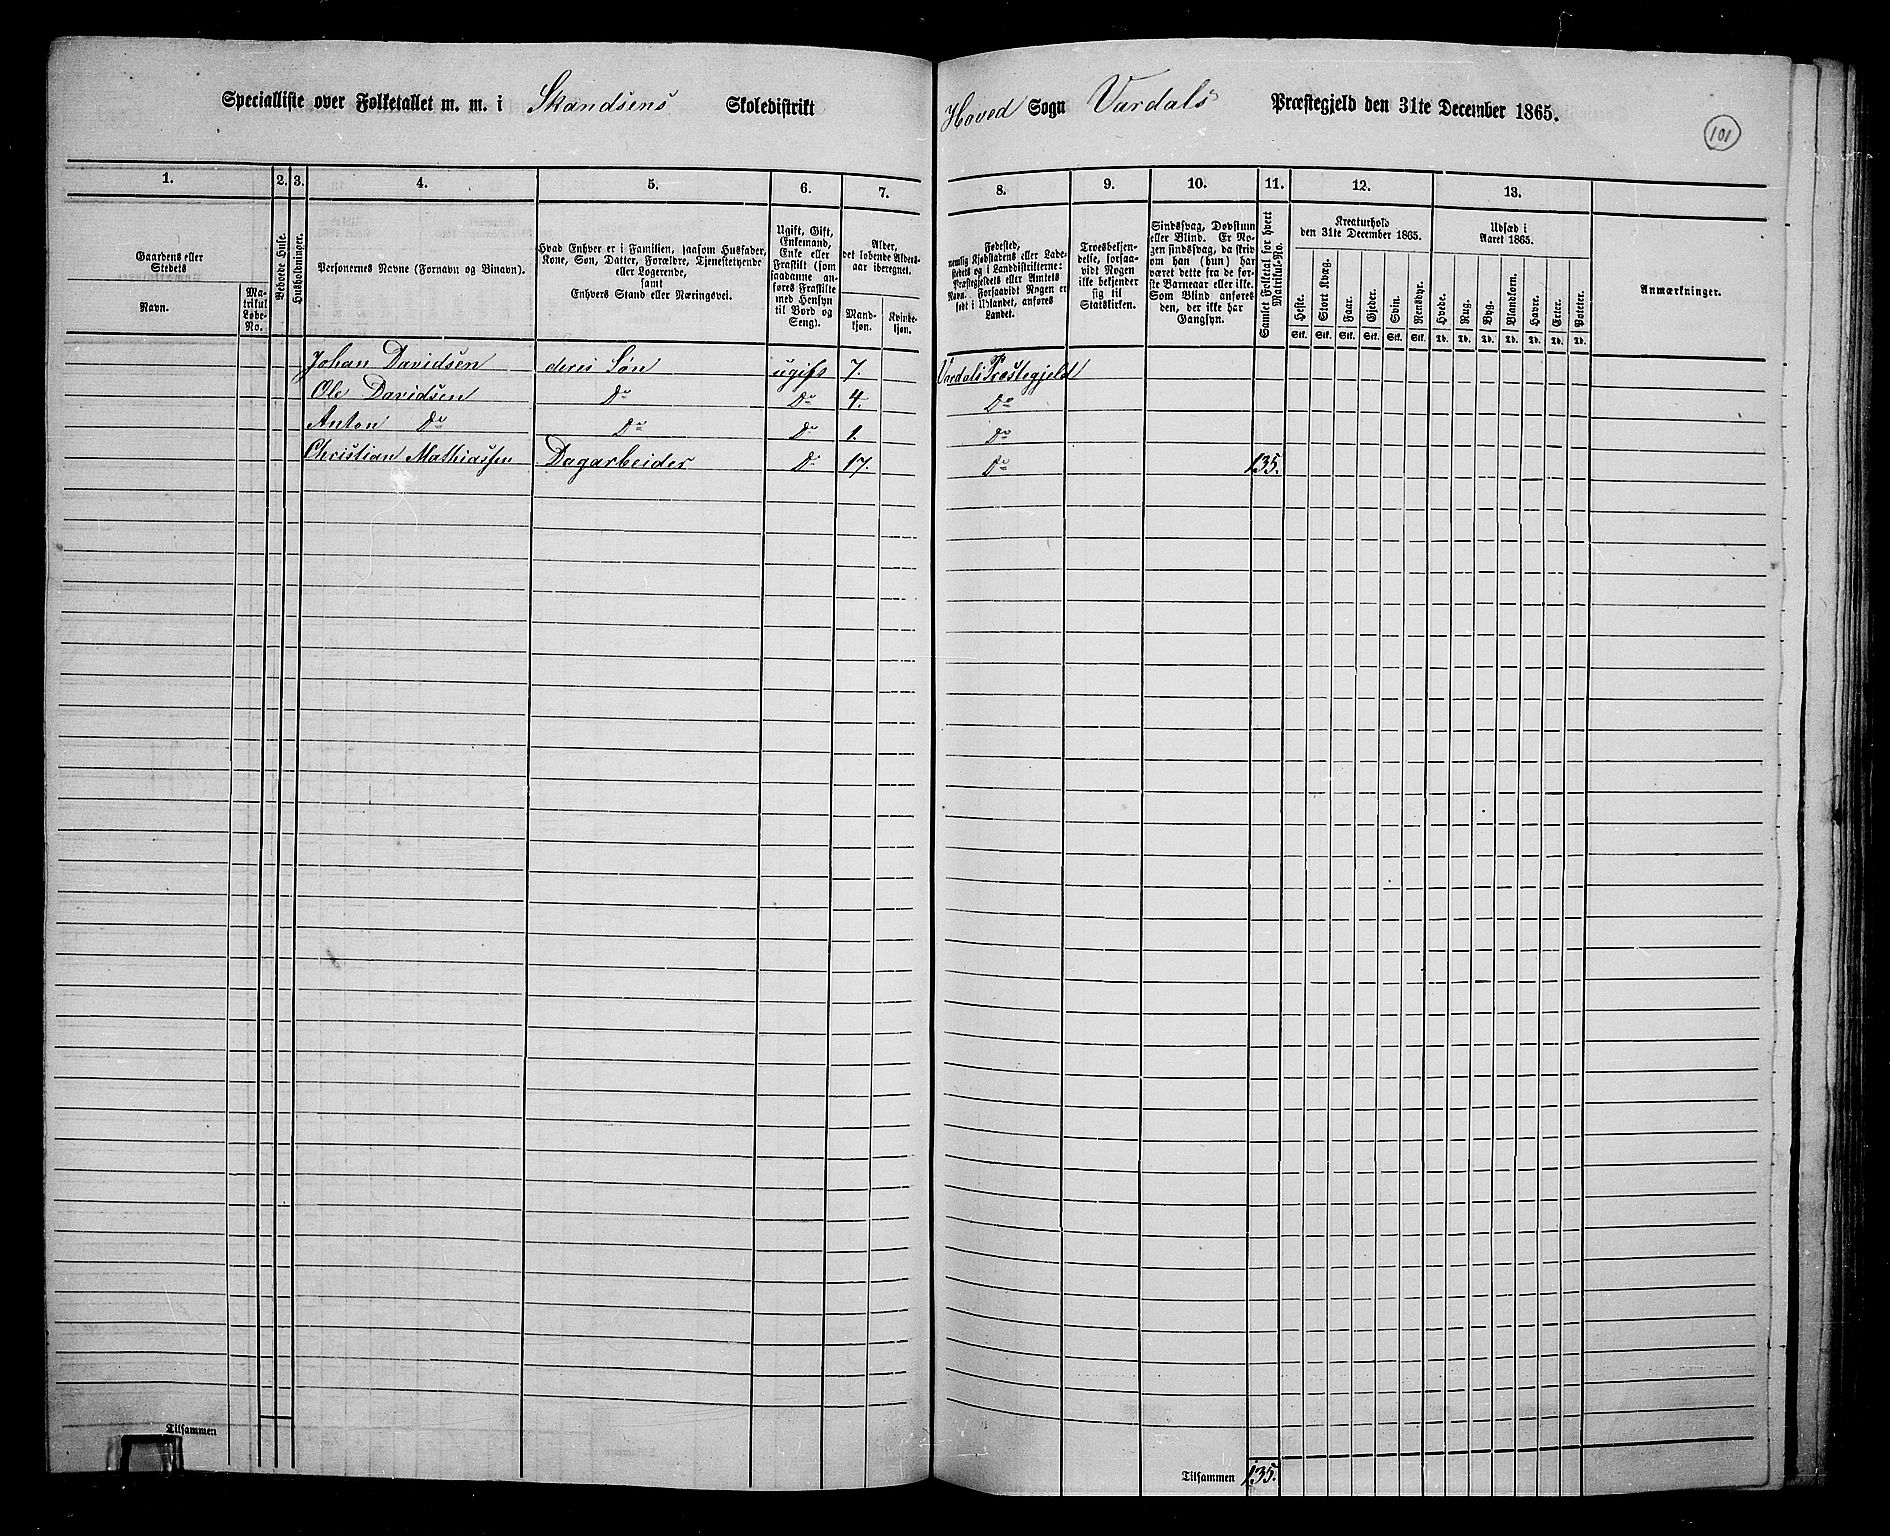 Specialliste over Folketallet m. m. i Skandsens Skoledistrikt Hoved Sogn Vardals Præstegjeld den 31te December 1865.
101
1. 2. 3. 4. 5. 6. 7. 8. 9. 10. 11. 12. 13.
Gaardens eller Stedets
Navn.
Matrikul Løbe-No.
Beboede Huse.
Husholdninger.
Personernes Navne (Fornavn og Binavn).
Hvad Enhver er i Familien, saasom Husfader,
Kone, Søn, Datter, Forældre, Tjenestetyende
eller Logerende,
samt
Enhvers Stand eller Næringsvei.
Ugift, Gift,
Enkemand,
Enke eller
Fraskilt (som
saadanne an-
føres Fraskilte
med Hensyn
til Bord og
Seng).
Alder,
det løbende Alders-
aar iberegnet.
Mand-
kjøn.
Kvinde-
kjøn.
Fødested,
nemlig Kjøbstadens eller Lade-
stedets og i Landdistrikterne:
Præstegjeldets eller Amtets
Navn. Forsaavidt Nogen er
født i Udlandet, anføres
Landet.
Troesbekjen-
delse, forsaa-
vidt Nogen
ikke bekjender
sig til
Statskirken.
Sindssvag, Døvstum
eller Blind. Er No-
gen sindssvag, da skriv
om han (hun) har
været dette fra de før-
ste Barneaar eller ikke.
Som Blind anføres
den, der ikke har
Gangsyn.
Samlet Folketal for hvert
Matrikul-No.
Kreaturhold
den 31te December 1865.
Heste. Stort Kvæg. Faar. Gjeder. Svin. Rensdyr.
Stk. Stk. Stk. Stk. Stk. Stk.
Udsæd i
Aaret 1865.
Hvede. Rug. Byg. Blandkorn. Havre. Erter. Poteter.
Td. Td. Td. Td. Td. Td. Td.
Anmærkninger.
Johan Davidsen deres Søn ugift 7. Vardals Præstegjeld
Ole Davidsen Do Do 4. Do
Anton Do Do Do 1. Do
Christian Mathiassen Dagarbeider Do 17. Do 135.
Tilsammen
Tilsammen 135.